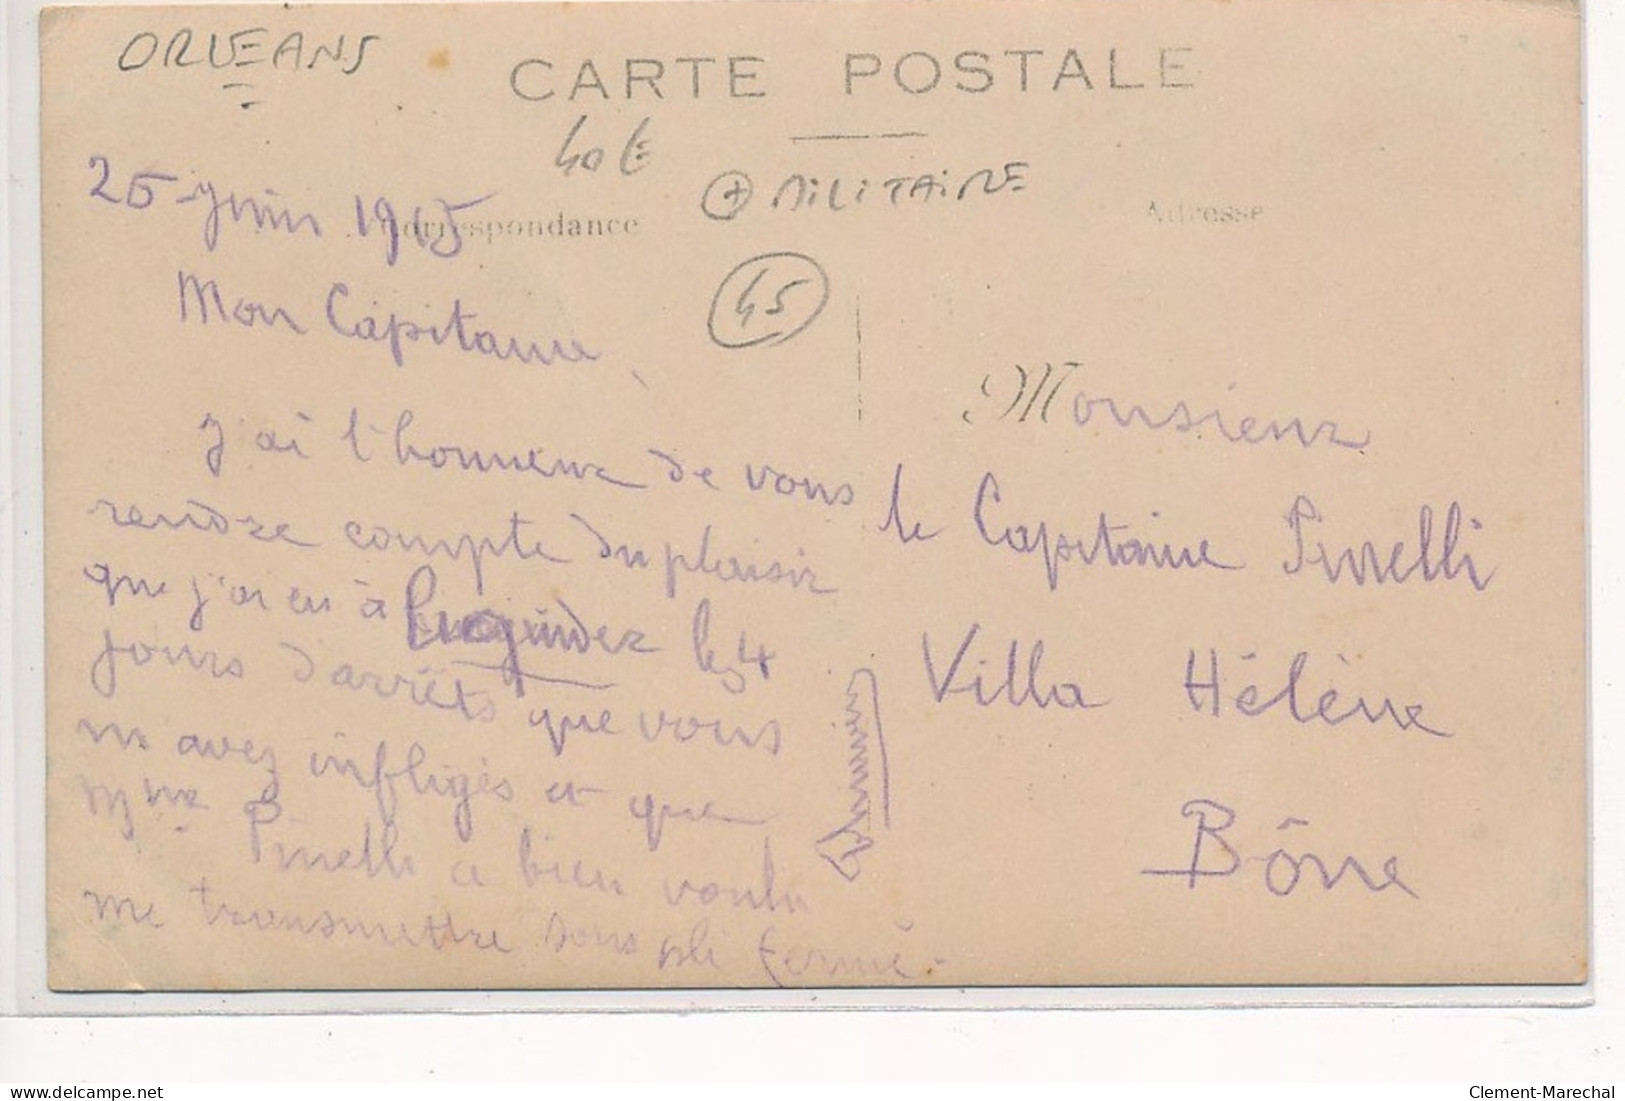 ORLEANS
CARTE POSTALE
40 €
+ MILITAIRE
25 juin 1915
Correspondance
Adresse
45
Mon Capitaine,
J'ai l'honneur de vous
rendre compte du plaisir
que j'ai eu à les 4
jours d'arrêts que vous
m'avez infligés et que
Mme Pinelli a bien voulu
me transmettre sous pli fermé.
Monsieur
le Capitaine Pinelli
Villa Hélène
Bône
Clement-Marechal